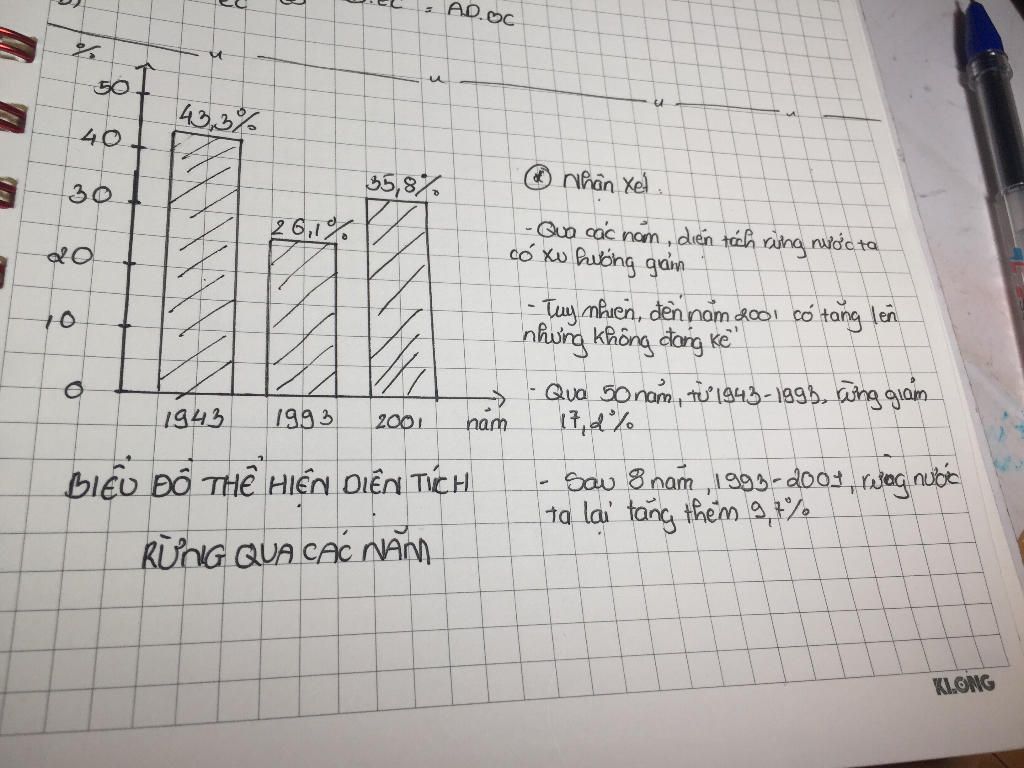 = AD.OC
%
50
40
30
20
10
0
43,3%
26,1%
35,8%
1943 1993 2001 năm
BIỂU ĐỒ THỂ HIỆN DIỆN TÍCH
RỪNG QUA CÁC NĂM
* Nhận xét.
- Qua các năm, diện tích rừng nước ta
có xu hướng giảm
- Tuy nhiên, đến năm 2001 có tăng lên
nhưng không đáng kể
- Qua 50 năm, từ 1943-1993, rừng giảm
17,2%
- Sau 8 năm, 1993-2001, rừng nước
ta lại tăng thêm 9,7%
KLONG